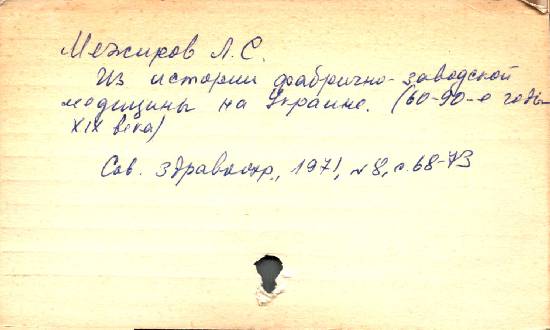 Межиров Л.С.
Из истории фабрично-заводской
медицины на Украине. (60-90-е годы
XIX века)
Сов. здравоохр., 1971, №8, с.68-73